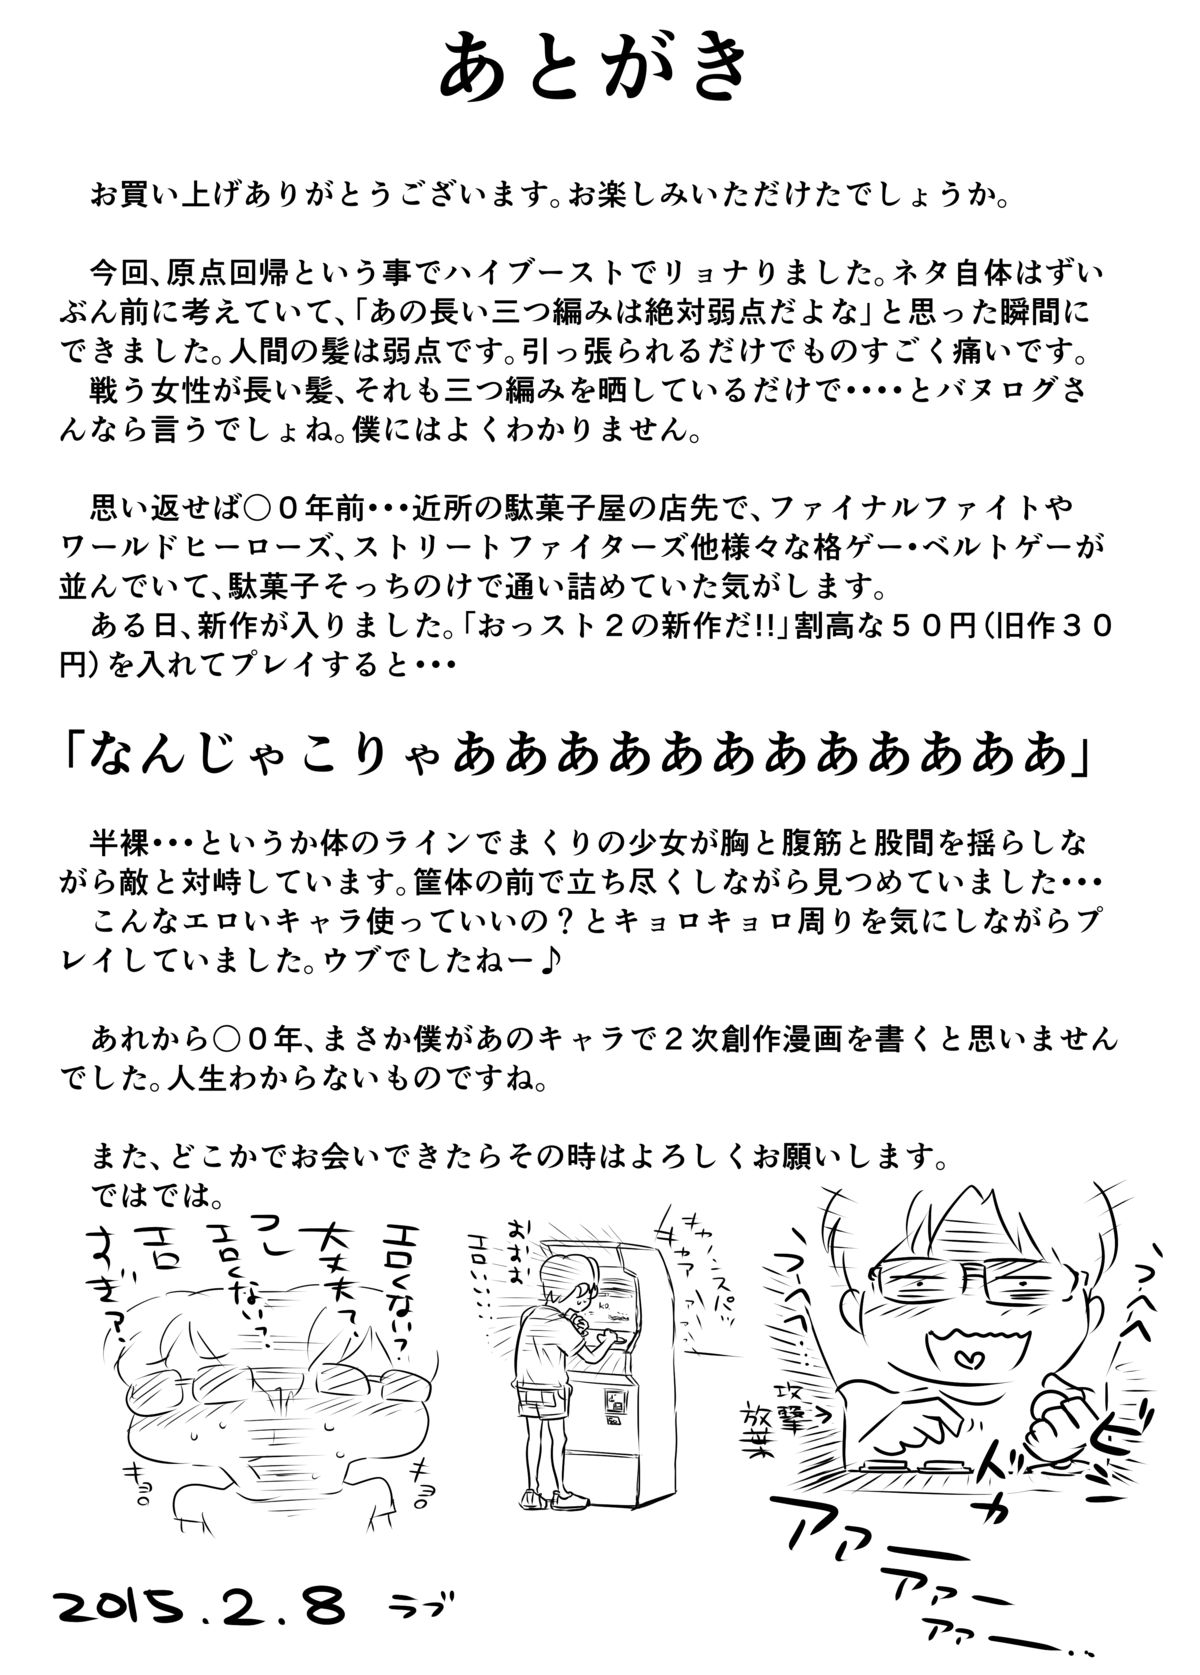 あとがき
お買い上げありがとうございます。お楽しみいただけたでしょうか。
今回、原点回帰という事でハイブーストでリョナりました。ネタ自体はずい
ぶん前に考えていて、「あの長い三つ編みは絶対弱点だよな」と思った瞬間に
できました。人間の髪は弱点です。引っ張られるだけでものすごく痛いです。
戦う女性が長い髪、それも三つ編みを晒しているだけで・・・・とバヌログさ
んなら言うでしょね。僕にはよくわかりません。
思い返せば○０年前・・・近所の駄菓子屋の店先で、ファイナルファイトや
ワールドヒーローズ、ストリートファイターズ他様々な格ゲー・ベルトゲーが
並んでいて、駄菓子そっちのけで通い詰めていた気がします。
ある日、新作が入りました。「おっスト２の新作だ!!」割高な５０円（旧作３０
円）を入れてプレイすると・・・
「なんじゃこりゃああああああああああああ」
半裸・・・というか体のラインでまくりの少女が胸と腹筋と股間を揺らしな
がら敵と対峙しています。筐体の前で立ち尽くしながら見つめていました・・・
こんなエロいキャラ使っていいの？とキョロキョロ周りを気にしながらプ
レイしていました。ウブでしたねー♪
あれから○０年、まさか僕があのキャラで２次創作漫画を書くと思いません
でした。人生わからないものですね。
また、どこかでお会いできたらその時はよろしくお願いします。
ではでは。
エロくない？
大丈夫？
コレ
エロくない？
エロ
すぎ？
キョロ
キョロ
おおお
エロい…
キャノンスパイ
キャアァァ
K.O.
つへへ
つへへへ
攻撃
放棄
ドカ
ビシ
アァーー
アァー
アァー..
2015.2.8 ラブ